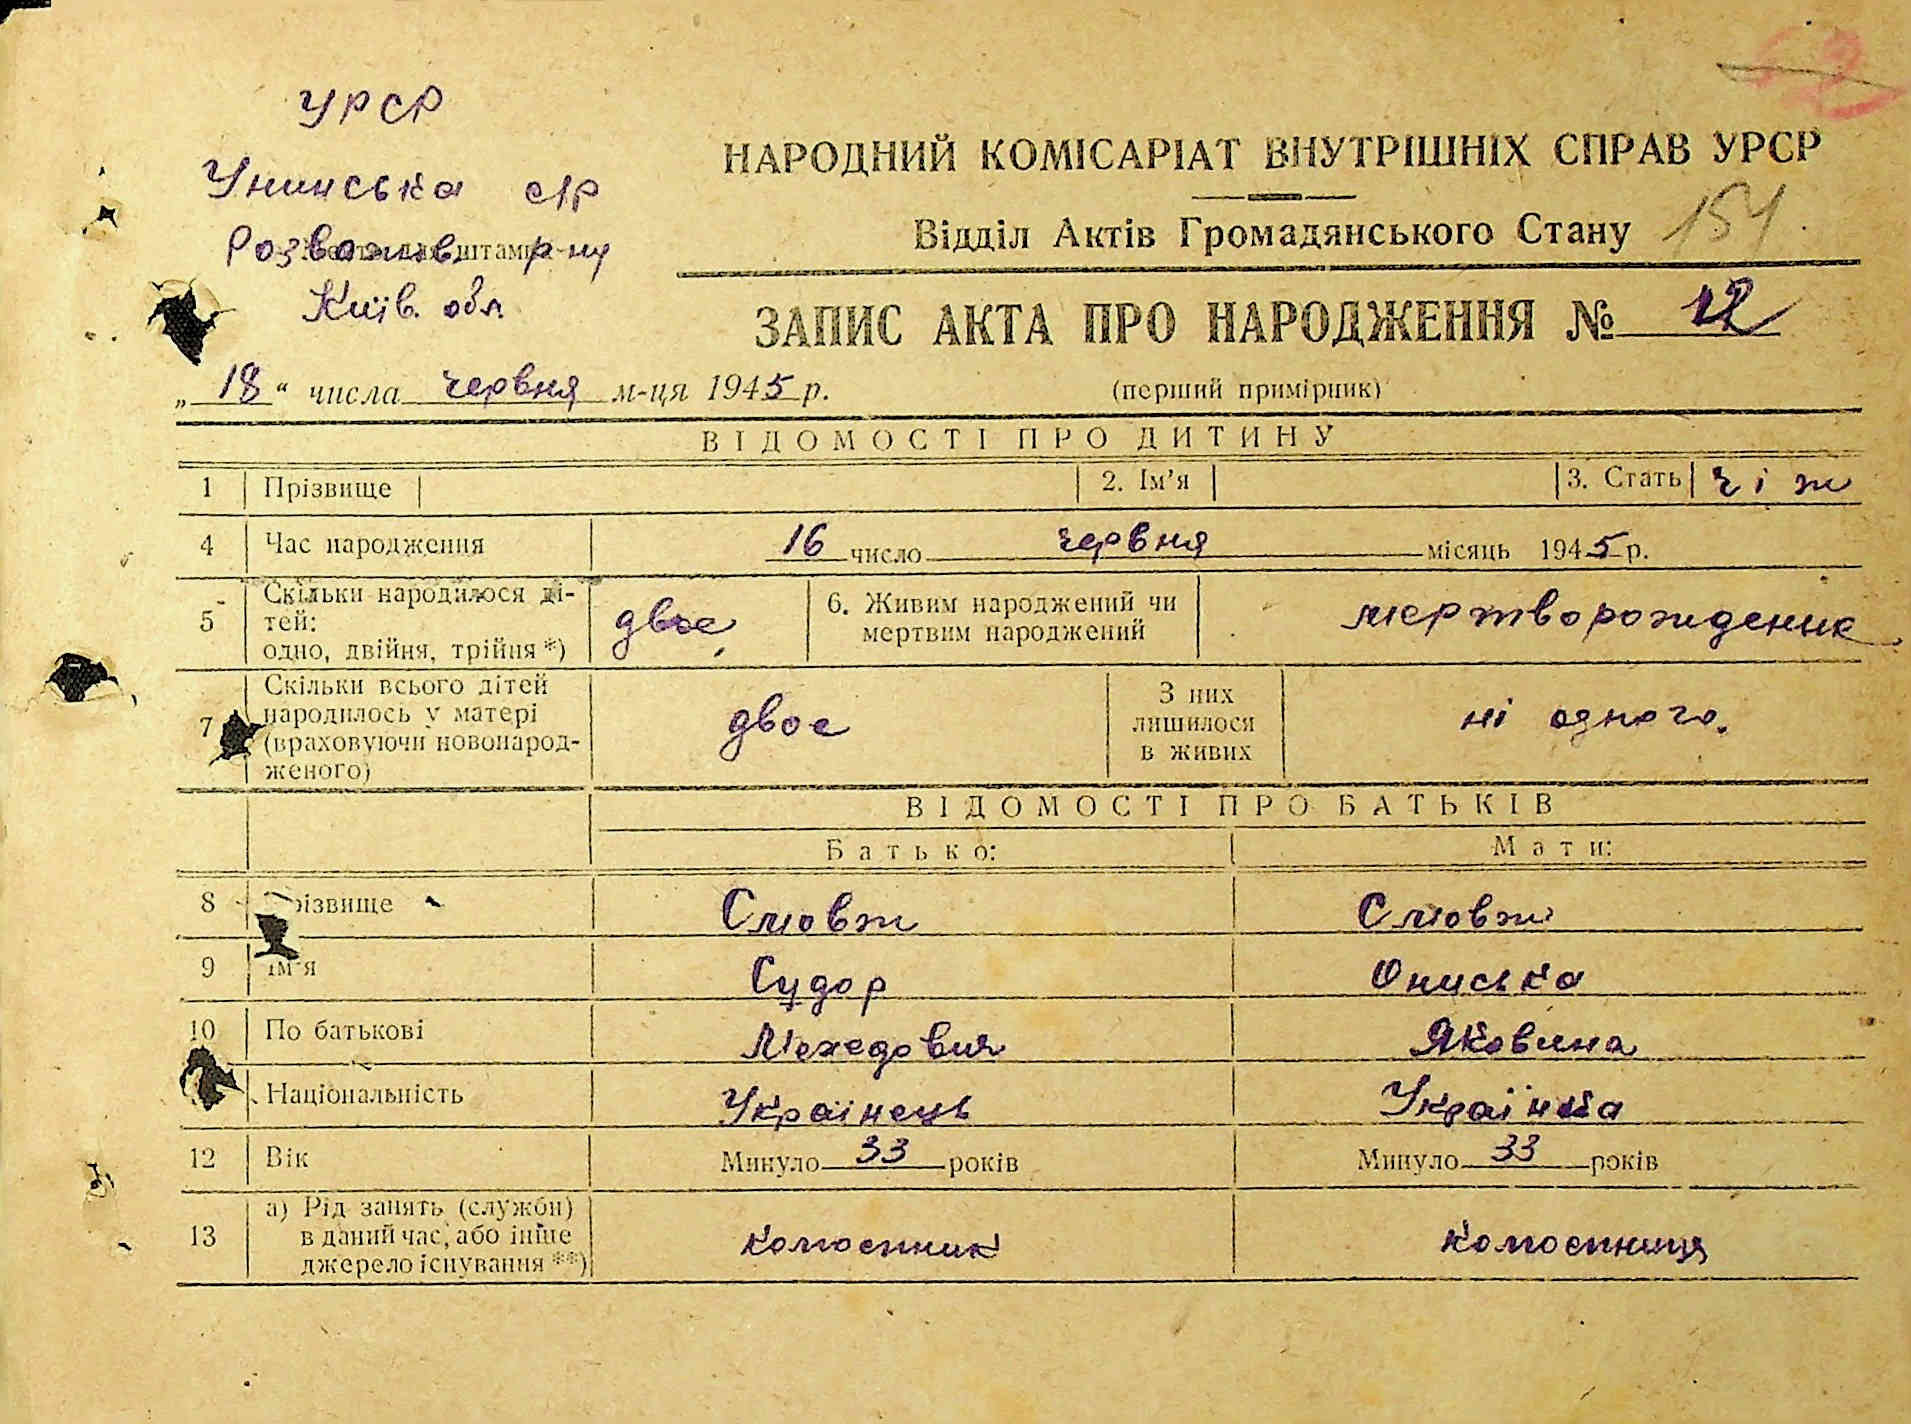 УРСР
Унинська с/р
Розважів. р-ну
Київ. обл.
НАРОДНИЙ КОМІСАРІАТ ВНУТРІШНІХ СПРАВ УРСР
Відділ Актів Громадянського Стану 154
ЗАПИС АКТА ПРО НАРОДЖЕННЯ № 12
„ 18 “ числа червня м-ця 1945 р. (перший примірник)
ВІДОМОСТІ ПРО ДИТИНУ
1 Прізвище 2. Ім'я 3. Стать ч і ж
4 Час народження 16 число червня місяць 1945 р.
5 Скільки народилося ді-
тей:
одно, двійня, трійня *) двоє 6. Живим народжений чи
мертвим народжений мертворожденик
7 Скільки всього дітей
народилось у матері
(враховуючи новонарод-
женого) двоє З них
лишилося
в живих ні одного.
ВІДОМОСТІ ПРО БАТЬКІВ
Батько: Мати:
8 різвище Смовж Смовж
9 Ім'я Сидор Ониська
10 По батькові Мехедович Яковина
Національність Українець Українка
12 Вік Минуло 33 років Минуло 33 років
13 а) Рід занять (служби)
в даний час, або інше
джерело існування **) колгоспник колгоспниця